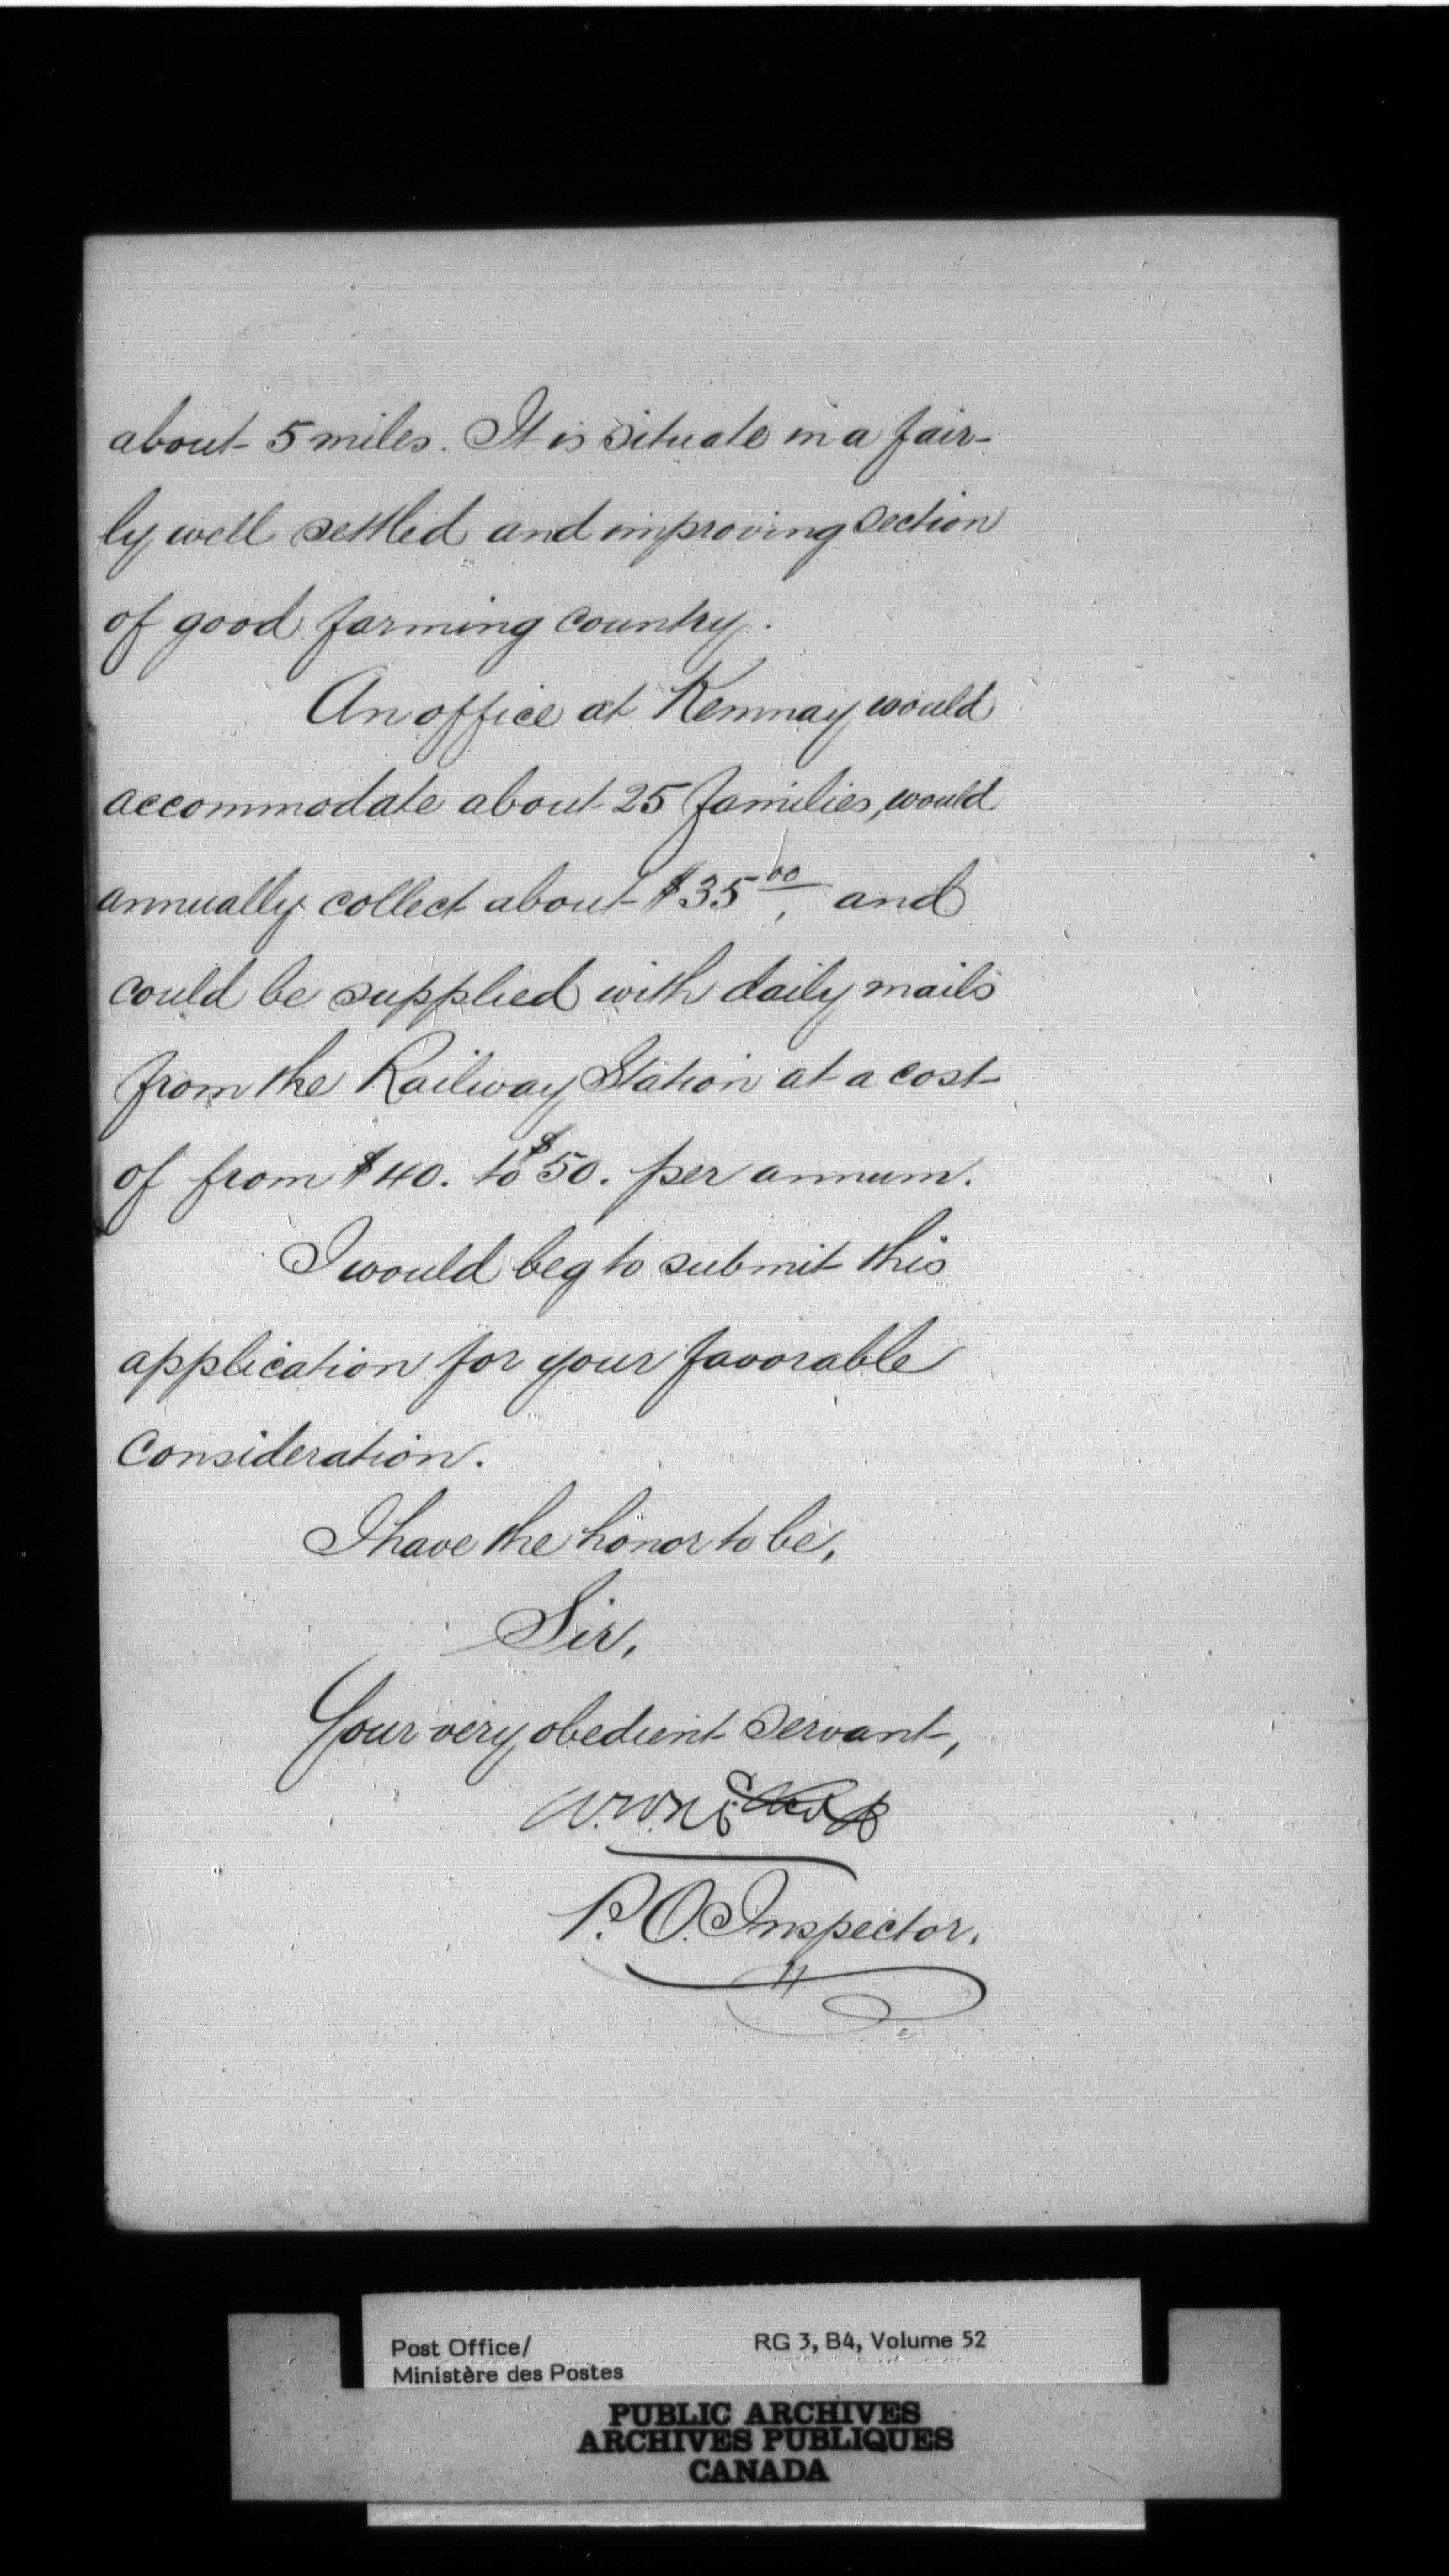 about 5 miles. It is situate in a fair-
ly well settled and improving section
of good farming country.
An office at Kemnay would
accommodate about 25 families, would
annually collect about $35.00 and
could be supplied with daily mails
from the Railway Station at a cost
of from $40. to $50. per annum.
I would beg to submit this
application for your favorable
consideration.
I have the honor to be,
Sir,
Your very obedient servant,
P. O. Inspector.
Post Office/
Ministère des Postes
RG 3, B4, Volume 52
PUBLIC ARCHIVES
ARCHIVES PUBLIQUES
CANADA